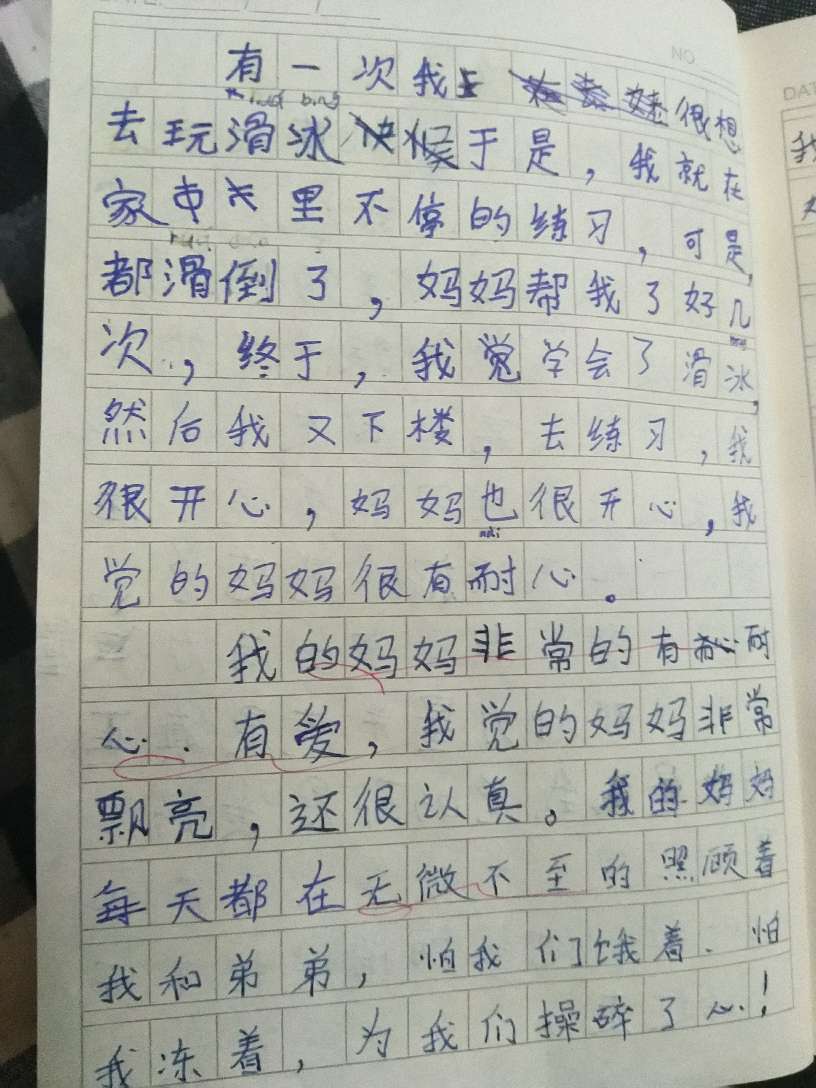 DATE
NO
有一次我 很想
huá bīng
去玩滑冰 于是，我就在
家 里不停的练习，可是，
都滑倒了，妈妈帮我了好几
次，终于，我觉学会了滑冰，
然后我又下楼，去练习，我
很开心，妈妈也很开心，我
nài
觉的妈妈很有耐心。
我的妈妈非常的有 耐
心、有爱，我觉的妈妈非常
飘亮，还很认真。我的妈妈
每天都在无微不至的照顾着
我和弟弟，怕我们饿着、怕
我冻着，为我们操碎了心！
DAT
我